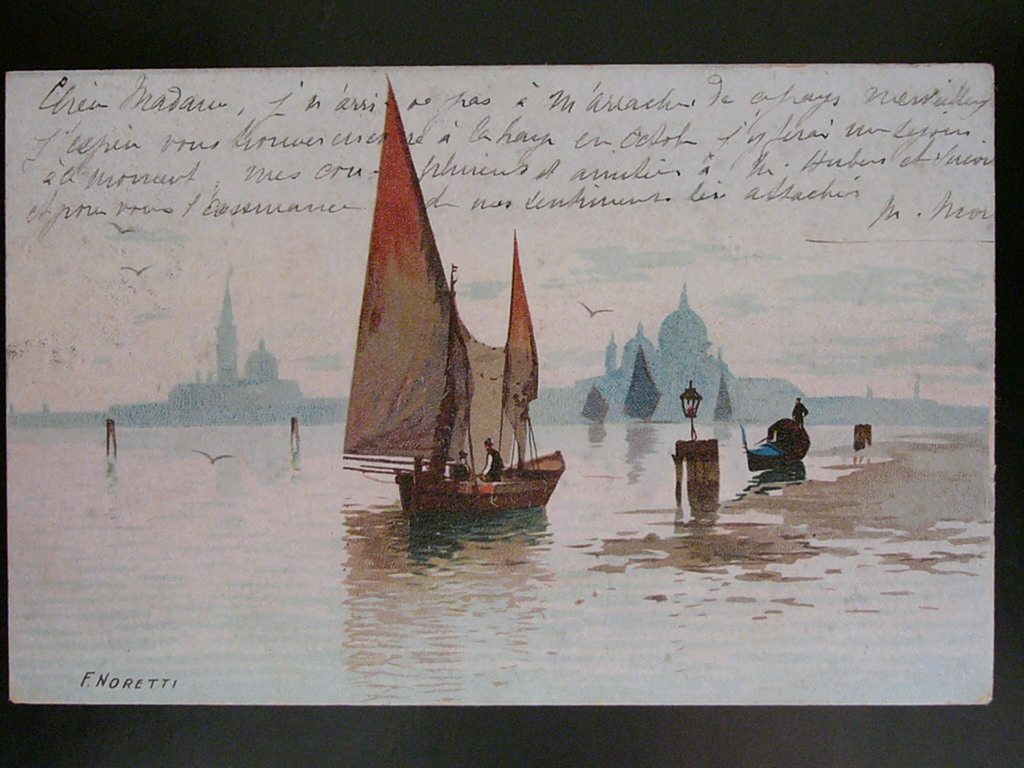 Chère Madame, j'n'arrive pas à m'arracher de ce pays merveilleux
J'espère vous trouver encore à la haye en Octob j'y ferai un séjour
à ce moment, mes compliments et amitiés à M. Hubert et
et pour vous l'assurance de mes sentiments les attachés
M.
F. NORETTI